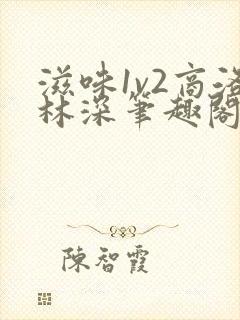 滋味1v2高洛
林深筆趣閣
陳智霞